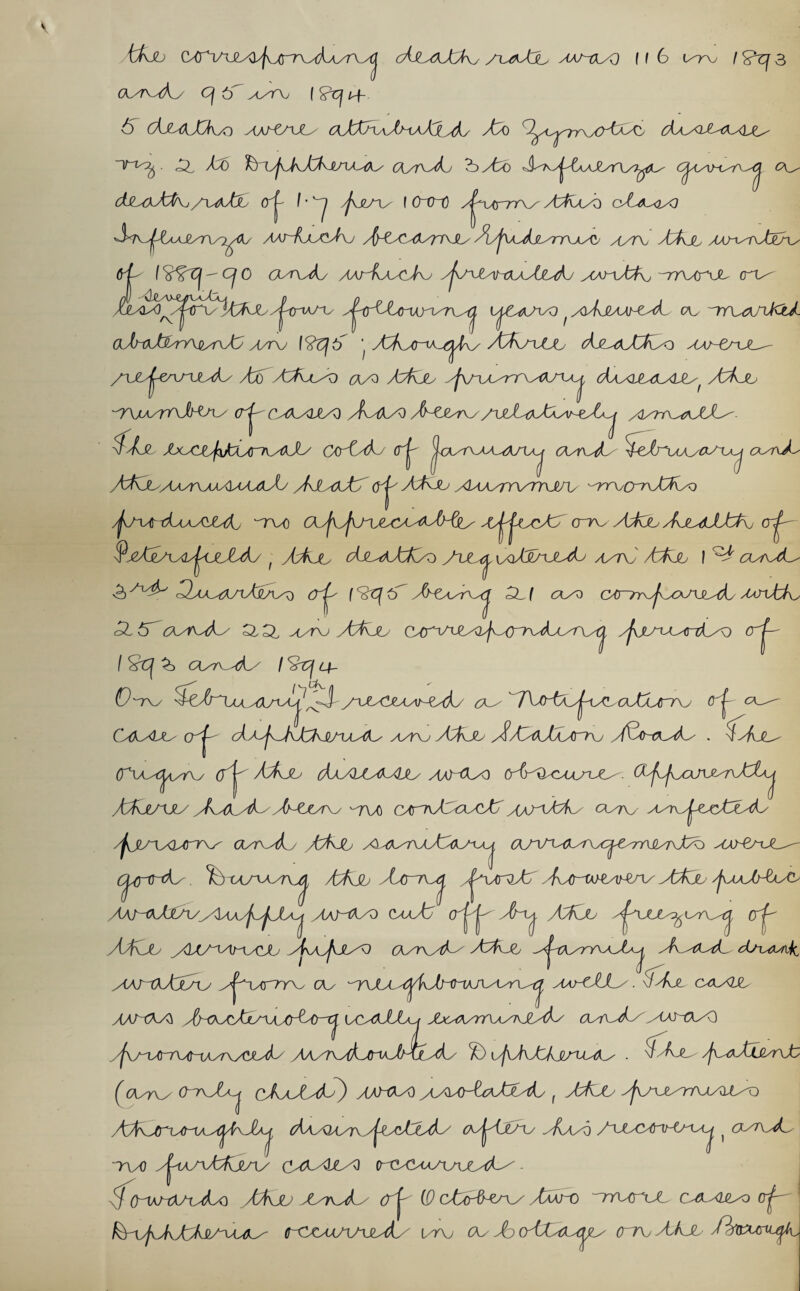 the corresponding death rate was 116 in 1893
and 95 in 1894.
5 deaths were attributed to Zymotic disease
viz. 2 to Diphtheria and 3 to Influenza giving a
death rate of 1·7 per 1000 from this class
Influenza which became Epidemic in the winter
of 1889-90 and which prevailed with more or
less severity for the four following years, shewed a marked
abatement in 1895; though three deaths were
referred to this as the primary disease, the
number of cases has been relatively small.
The exceptional cold of January and February and
the unusual heat of the summer months
produced no appreciable effect on the health of
Petersfield, the deaths registered in the 1st and
3rd Quarters of 1895 being 21 as compared with
25 and 22 in the corresponding periods of
1893 and 1894
On February 15th I received a Notification of a
Case of diphtheria in the Station Road. The
origin of the disease was obscure. Apparently
there had been no contact with an infected
person and the sanitary arrangements were
good. During the long frost however the public
water supply was cut off by the freezing of
the service pipes and the family had drank
water from a neighbouring well. The case
was bacteriologically examined and was
pronounced undoubted Diphtheria. The patient
(an only child) was isolated, the premises
thoroughly disinfected after his recovery, and
no further cases occurred.
Towards the end of October two more cases of
Diphtheria occurred in a Cottage on the Borough